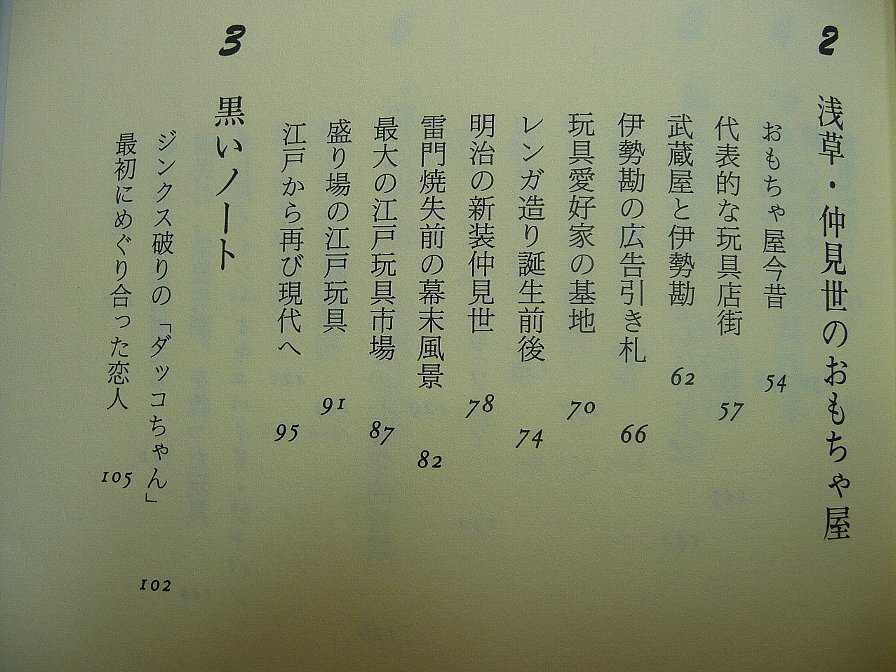 2 浅草・仲見世のおもちゃ屋
おもちゃ屋今昔 54
代表的な玩具店街 57
武蔵屋と伊勢勘 62
伊勢勘の広告引き札 66
玩具愛好家の基地 70
レンガ造り誕生前後 74
明治の新装仲見世 78
雷門焼失前の幕末風景 82
最大の江戸玩具市場 87
盛り場の江戸玩具 91
江戸から再び現代へ 95
3 黒いノート
ジンクス破りの「ダッコちゃん」 102
最初にめぐり合った恋人 105